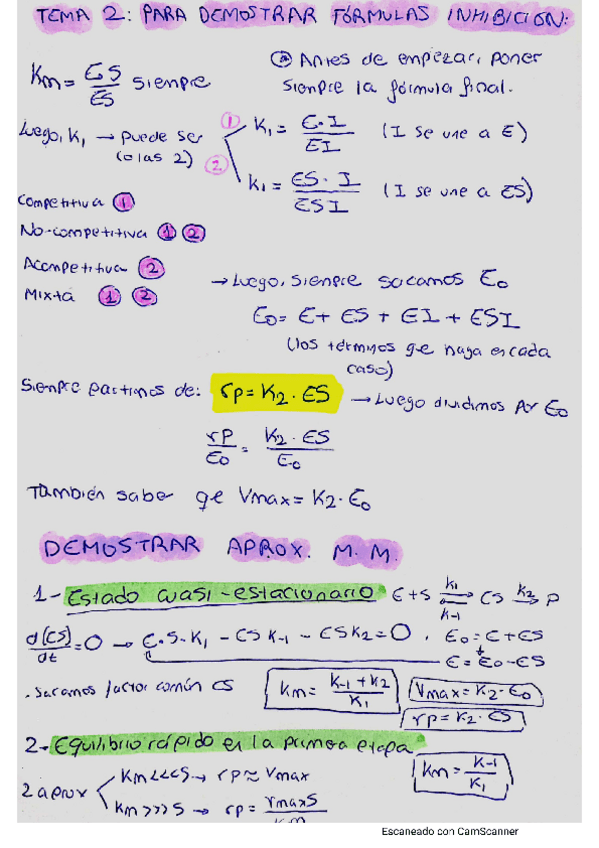 TEMA 2: PARA DEMOSTRAR FÓRMULAS INHIBICIÓN:
* Antes de empezar, poner
siempre la fórmula final.
Km = E·S / ES siempre
Luego, K1 → puede ser
(o las 2)
① K1 = E·I / EI (I se une a E)
② K1 = ES·I / ESI (I se une a ES)
Competitiva ①
No-competitiva ① ②
Acompetitiva ②
Mixta ① ②
→ Luego, siempre sacamos E0
E0 = E + ES + EI + ESI
(los términos qe haya en cada
caso)
Siempre partimos de: rp = K2 · ES → Luego dividimos por E0
rp / E0 = K2 · ES / E0
También saber qe Vmax = K2 · E0
DEMOSTRAR APROX. M. M.
1- Estado cuasi-estacionario E+S ⇌ ES → P
K1 K2
K-1
d(ES)/dt = 0 → E·S·K1 - ES K-1 - ES K2 = 0 . E0 = E + ES
E = E0 - ES
. Sacamos factor común ES
Km = K-1 + K2 / K1
Vmax = K2 · E0
rp = K2 · ES
2- Equilibrio rápido en la primera etapa
Km = K-1 / K1
2 aprox
Km <<< S → rp ≈ Vmax
Km >>> S → rp = VmaxS / Km
Escaneado con CamScanner